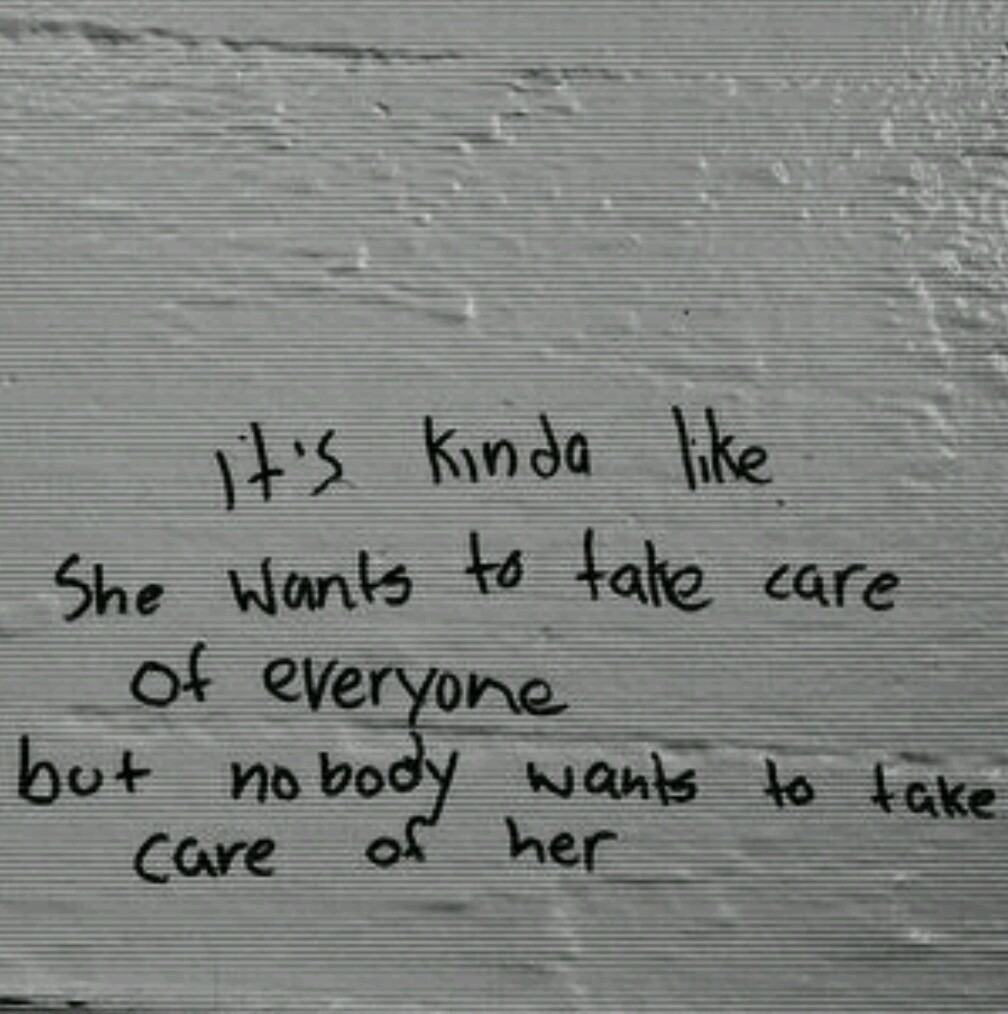 it's kinda like
She wants to take care
of everyone
but nobody wants to take
care of her